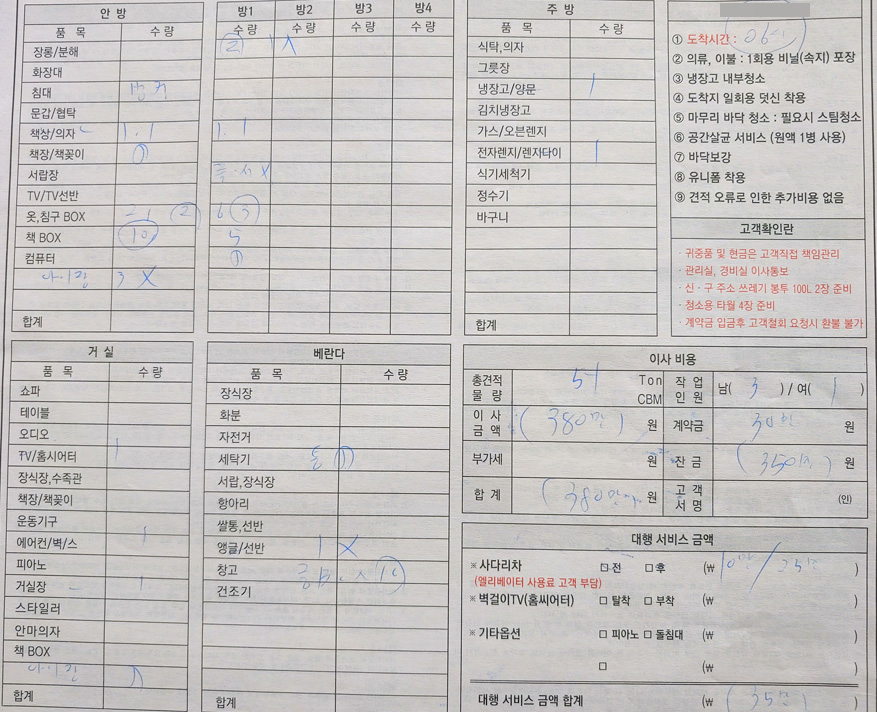 안 방
품 목 수 량
장롱/분해
화장대
침대
문갑/협탁
책장/의자 1. 1
책장/책꽂이
서랍장
TV/TV선반
옷,침구 BOX 2
책 BOX 10
컴퓨터
3 X
합계
방1 방2 방3 방4
수 량 수 량 수 량 수 량
2
1. 1
X
6 3
5
주 방
품 목 수 량
식탁,의자
그릇장
냉장고/양문 1
김치냉장고
가스/오븐렌지
전자렌지/렌자다이 1
식기세척기
정수기
바구니
합계
① 도착시간 :
② 의류, 이불 : 1회용 비닐(속지) 포장
③ 냉장고 내부청소
④ 도착지 일회용 덧신 착용
⑤ 마무리 바닥 청소 : 필요시 스팀청소
⑥ 공간살균 서비스 (원액 1병 사용)
⑦ 바닥보강
⑧ 유니폼 착용
⑨ 견적 오류로 인한 추가비용 없음
고객확인란
· 귀중품 및 현금은 고객직접 책임관리
· 관리실, 경비실 이사통보
· 신 · 구 주소 쓰레기 봉투 100L 2장 준비
· 청소용 타월 4장 준비
· 계약금 입금후 고객철회 요청시 환불 불가
거 실
품 목 수 량
쇼파
테이블
오디오
TV/홈시어터 1
장식장,수족관
책장/책꽂이
운동기구
에어컨/벽/스 1
피아노
거실장 1
스타일러
안마의자
책 BOX
합계
베란다
품 목 수 량
장식장
화분
자전거
세탁기
서랍,장식장
항아리
쌀통,선반
앵글/선반 1 X
창고
건조기
합계
이사 비용
총견적 물 량 Ton CBM 작 업 인 원 남( 3 ) / 여( 1 )
이 사 금 액 ( 380만 ) 원 계약금 30만 원
부가세 원 잔 금 ( 350만 ) 원
합 계 ( 380만 원 고 객 서 명 (인)
대행 서비스 금액
※ 사다리차 □ 전 □ 후 (₩ 10만 / 25만 )
(엘리베이터 사용료 고객 부담)
※ 벽걸이TV(홈씨어터) □ 탈착 □ 부착 (₩ )
※ 기타옵션 □ 피아노 □ 돌침대 (₩ )
□ (₩ )
대행 서비스 금액 합계 (₩ ( 35만 ) )